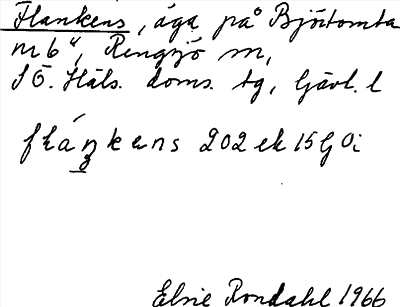 Flankens, äga på Björtomta
m 6", Rengsjö sn,
SÖ. Häls. doms. tg, Gävl. l
flánkens 202 ek 15G0i
Elsie Rondahl 1966